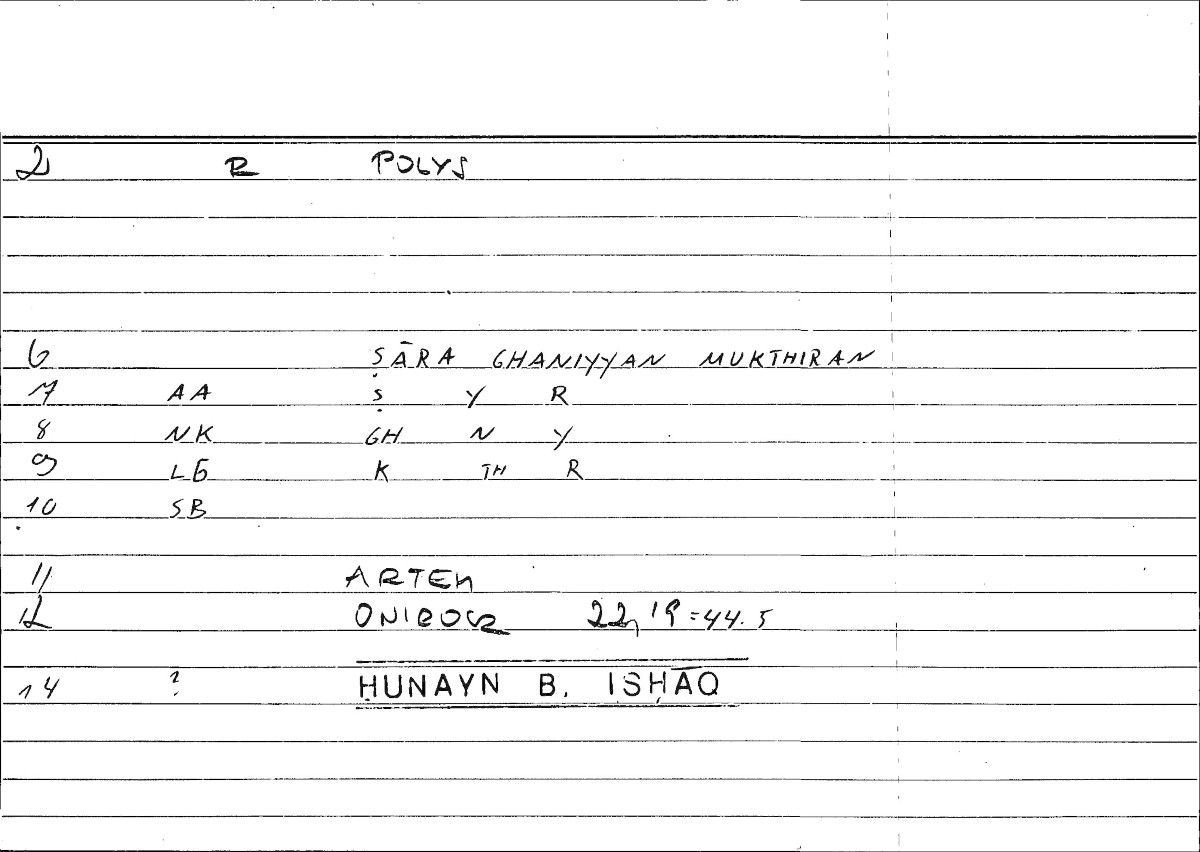 2 R POLYS
6 ṢĀRA GHANIYYAN MUKTHIRAN
7 AA Ṣ Y R
8 NK GH N Y
9 LG K TH R
10 SB
11 ARTEM
12 ONIROCR 22,19=44.5
14 ? ḤUNAYN B. ISḤĀQ